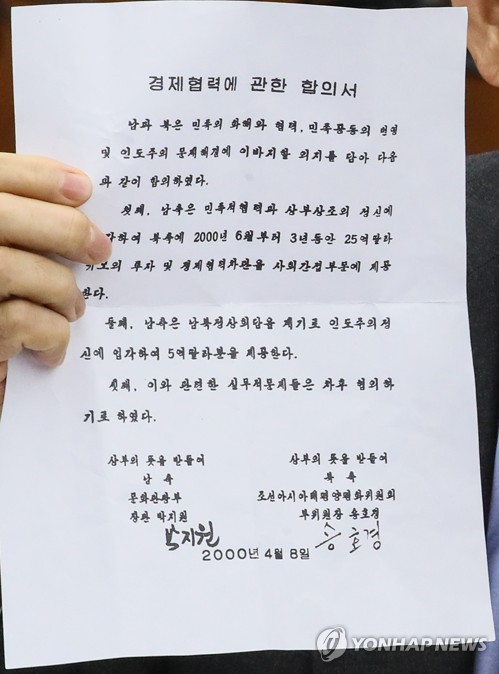 경제협력에 관한 합의서
남과 북은 민족의 화해와 협력, 민족공동의 번영
및 인도주의 문제해결에 이바지할 의지를 담아 다음
과 같이 합의하였다.
첫째, 남측은 민족적협력과 상부상조의 정신에
하여 북측에 2000년 6월부터 3년동안 25억딸라
의 투자 및 경제협력차관을 사회간접부문에 제공
한다.
둘째, 남측은 남북정상회담을 계기로 인도주의정
신에 입각하여 5억딸라분을 제공한다.
셋째, 이와 관련한 실무적문제들은 차후 협의하
기로 하였다.
상부의 뜻을 받들어 상부의 뜻을 받들어
남측 북측
문화관광부 조선아시아태평양평화위원회
장관 박지원 부위원장 송호경
박지원 송호경
2000년 4월 8일
YONHAP NEWS